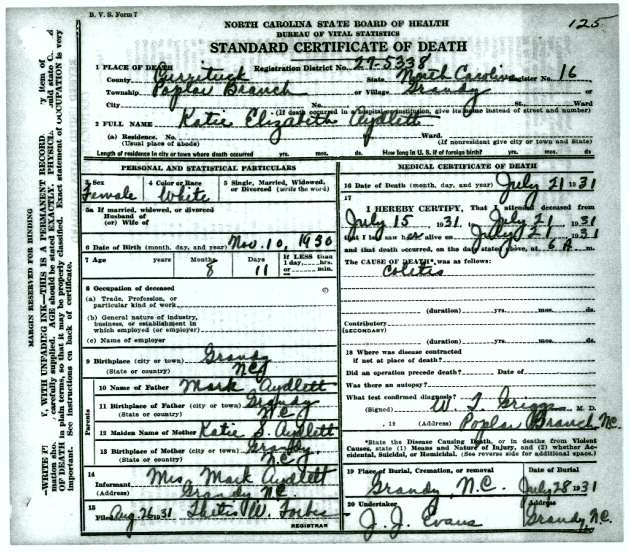 B. V. S. Form 7
125
NORTH CAROLINA STATE BOARD OF HEALTH
BUREAU OF VITAL STATISTICS
STANDARD CERTIFICATE OF DEATH
1 PLACE OF DEATH Registration District No. 27-5338
County Currituck State North Carolina Register No. 16
Township Poplar Branch or Village Grandy
City No. St. Ward
(If death occurred in a hospital or institution, give its name instead of street and number)
2 FULL NAME Katie Elizabeth Aydlett
(a) Residence. No. Ward.
(Usual place of abode) (If nonresident give city or town and State)
Length of residence in city or town where death occurred yrs. mos. ds. How long in U. S. if of foreign birth? yrs. mos. ds.
PERSONAL AND STATISTICAL PARTICULARS
3 Sex 4 Color or Race 5 Single, Married, Widowed, or Divorced (write the word)
Female White
5a If married, widowed, or divorced
Husband of
(or) Wife of
6 Date of Birth (month, day, and year) Nov. 10, 1930
7 Age years Months Days If LESS than
8 11 1 day, hrs.
or min.
8 Occupation of deceased
(a) Trade, Profession, or
particular kind of work
(b) General nature of industry,
business, or establishment in
which employed (or employer)
(c) Name of employer
9 Birthplace (city or town) Grandy
(State or country) NC
10 Name of Father Mark Aydlett
11 Birthplace of Father (city or town) Grandy
(State or country) N.C.
12 Maiden Name of Mother Katie S. Aydlett
13 Birthplace of Mother (city or town) Grandy
(State or country) N.C.
Parents
14 Informant Mrs Mark Aydlett
(Address) Grandy NC.
15 Filed Aug 26 1931 Thetis W. Forbes
REGISTRAR
MEDICAL CERTIFICATE OF DEATH
16 Date of Death (month, day, and year) July 21 1931
17
I HEREBY CERTIFY, That I attended deceased from
July 15, 1931, July 21, 1931
that I last saw her alive on July 21, 1931
and that death occurred, on the date stated above, at 6 A. m.
The CAUSE OF DEATH* was as follows:
Coletis
(duration) yrs. mos. ds.
Contributory
(SECONDARY)
(duration) yrs. mos. ds.
18 Where was disease contracted
if not at place of death?
Did an operation precede death? Date of
Was there an autopsy?
What test confirmed diagnosis?
(Signed) W. T. Griggs M. D.
, 19 (Address) Poplar Branch NC.
*State the Disease Causing Death, or in deaths from Violent
Causes, state (1) Means and Nature of Injury, and (2) whether Ac-
cidental, Suicidal, or Homicidal. (See reverse side for additional space.)
19 Place of Burial, Cremation, or removal Date of Burial
Grandy, N.C. July 28 1931
20 Undertaker Address
J. J. Evans Grandy, NC
MARGIN RESERVED FOR BINDING
WITH UNFADING INK—THIS IS A PERMANENT RECORD.
carefully supplied. AGE should be stated EXACTLY.
OF DEATH in plain terms, so that it may be properly classified. Exact statement of OCCUPATION is very
important. See instructions on back of certificate.